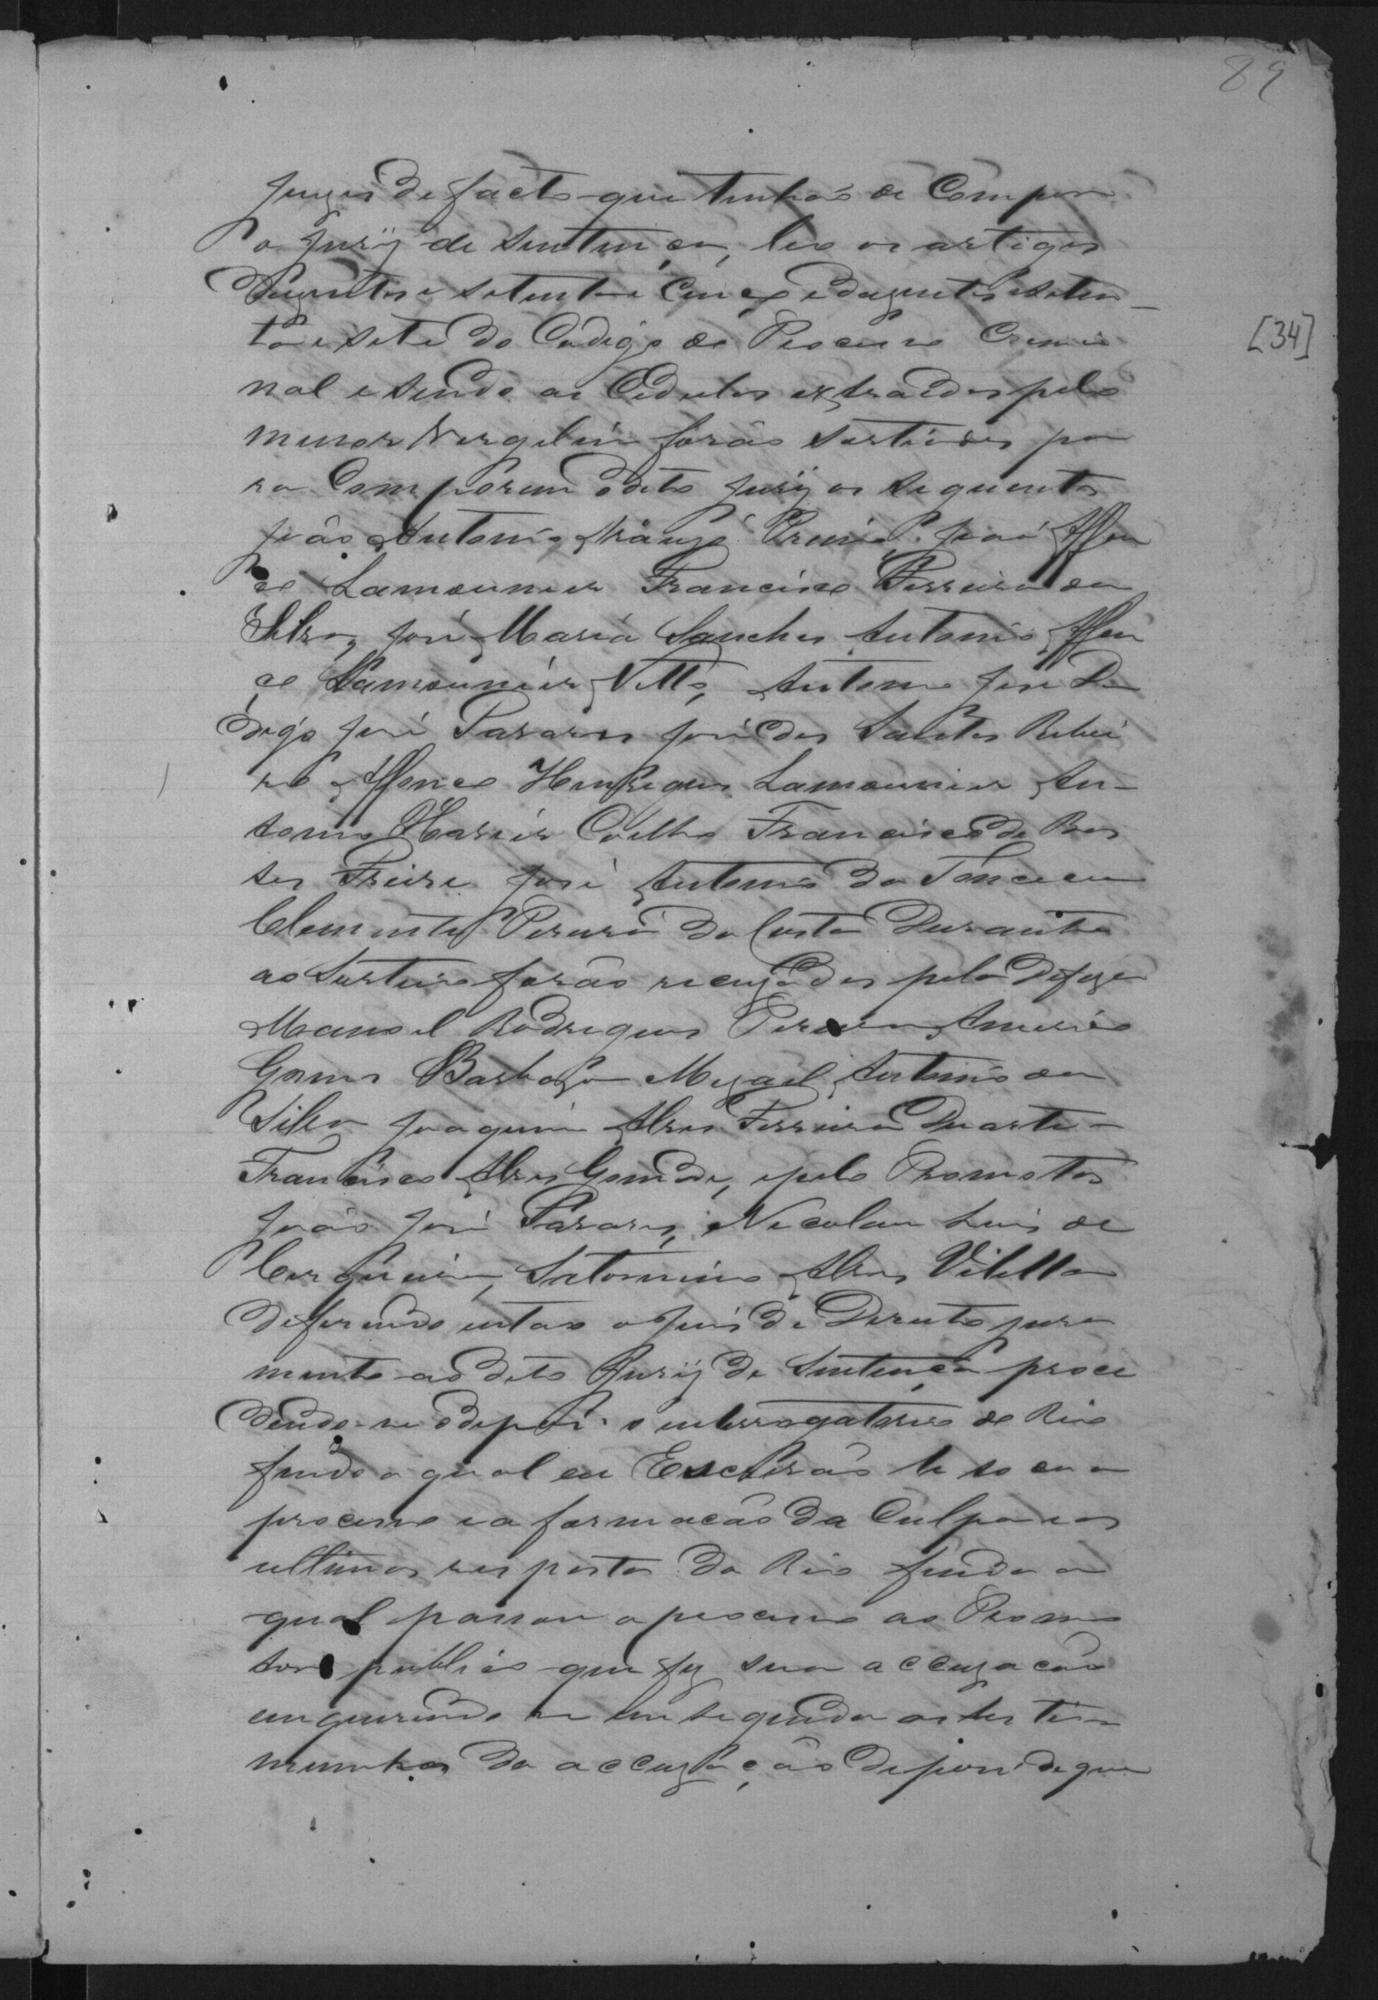 89
[34]
Juizes de facto que tinhão de Compor
o Jury de Sentença, leo os artigos
Duzentos e setenta e Cinco e duzentos e seten-
ta e sete do Codigo do Processo Crimi
nal e sendo as Cedulas extraidas pelo
menor Vergilio forão sorteados pa
ra Comporem o dito Jury os seguintes
João Antonio Araujo José Affon
ço Lamounier Francisco Ferreira da
Silva, José Maria Sanches Antonio Affon
ço Lamounier Netto, Antonio José Di
ogo José Tavares José dos Santos Ribei
ro Affonço Henriques Lamounier An-
tonio Xavier Coelho Francisco de Bas
tos Freire José Antonio da Fonceca
Clemente Pereira da Costa Durante
ao Sorteio forão recuzados pela Defeza
Manoel Rodrigues Pereira Americo
Gomes Barboza Mizael Antonio da
Silva Joaquim Alves Ferreira Duarte
Francisco Alves Gomide, e pelo Promotor
João José Tavares, Nicolau Luis de
Cerqueira, Satornino Alves Vilella
deferindo então o Juis de Direito jura
mento ao dito Jury de Sentença proce
dendo-se depois o interrogatorio do Reo
findo o qual eu Escrivão li toda a
processo e a formação da Culpa e as
ultimas respostas do Reo finda a
qual passou o processo ao Promo
tor publico que fez sua accuzação
em seguida as testi
munhas da accuzação depois de que